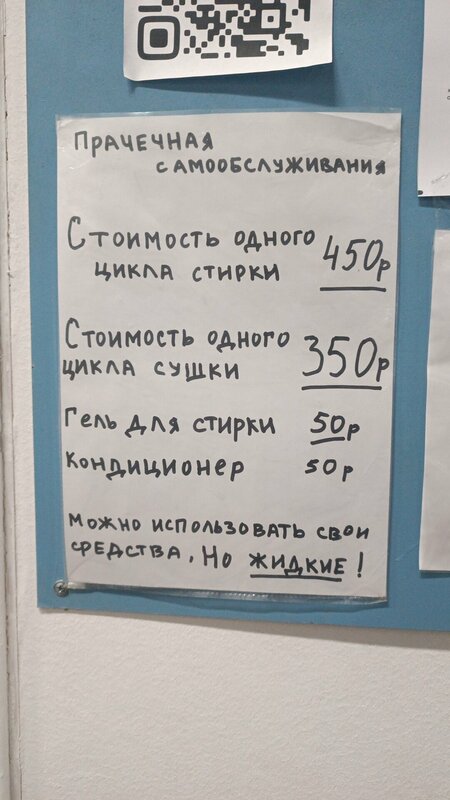 Прачечная
самообслуживания
Стоимость одного
цикла стирки 450р
Стоимость одного
цикла сушки 350р
Гель для стирки 50р
Кондиционер 50р
Можно использовать свои
средства, но жидкие!